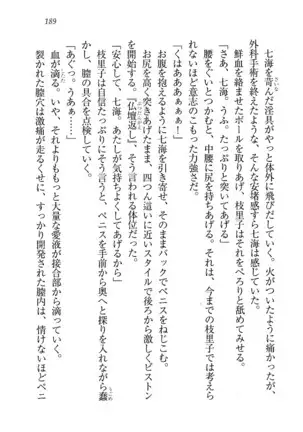 189
七海を苛んだ淫具がやっと体外に飛びだしていく。火がついたように痛かったが、
外科手術を終えたような、そんな安堵感すら七海は感じていた。
鮮血を絡ませたポールを取り割り、枝里子はそれをぺろりと舐めてみせる。
「さあ、七海。うふ。たっぷりと突いてあげる」
腰をぐいとつかむと、中腰に尻を持ちあげる。それは、今までの枝里子では考えら
れないほど意志のこもった力強さだ。
「くはあああぁぁ！」
お腹を抱えるように七海を引き寄せ、そのままバックでペニスをねじこむ。
お尻を高く突きあげたまま、四つん這いに近いスタイルで後ろから激しくピストン
を開始する。『仏壇返し』、そう言われる体位だった。
「安心して、七海。あたしが気持ちよくしてあげるから」
枝里子は自信たっぷりにそう言うと、ペニスを手前から奥へと探りを入れながら蠢
めき、膣の具合を点検していく。
「あぐっ。うあぁ……」
血が滴る。いや、それよりももっと大量な愛液が接合部から滴っていく。
裂かれた膣穴は激痛が走るくせに、すっかり開発された膣内は、情けないほどペニ